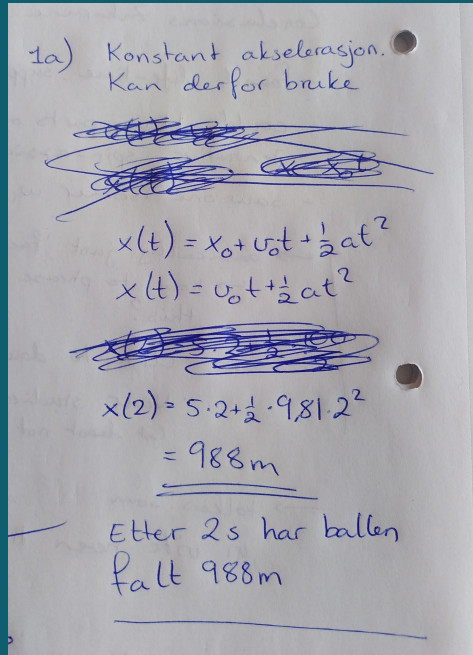 1a) Konstant akselerasjon.
Kan derfor bruke
x(t) = x₀ + v₀t + ½at²
x(t) = v₀t + ½at²
x(2) = 5·2 + ½·9,81·2²
= 988m
Etter 2s har ballen
falt 988m